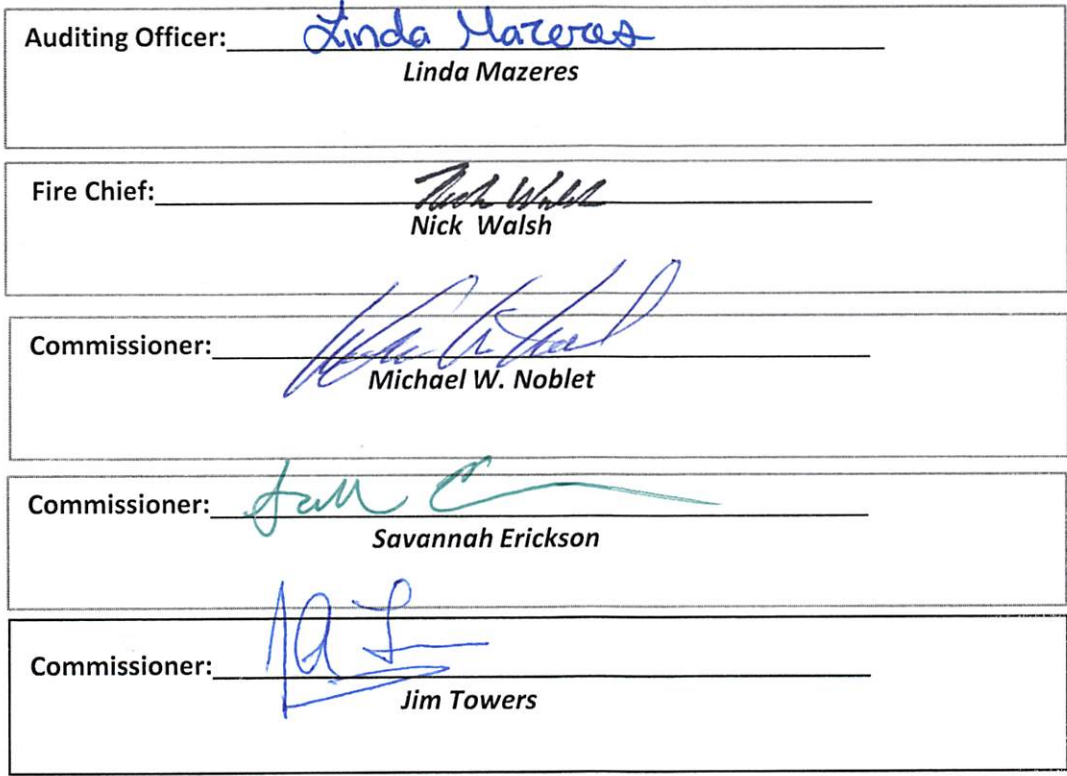 Auditing Officer: Linda Mazeres
Linda Mazeres
Fire Chief: Nick Walsh
Nick Walsh
Commissioner:
Michael W. Noblet
Commissioner:
Savannah Erickson
Commissioner:
Jim Towers